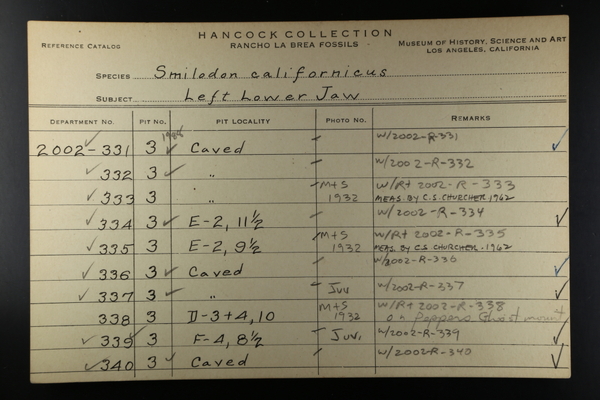 HANCOCK COLLECTION
REFERENCE CATALOG RANCHO LA BREA FOSSILS MUSEUM OF HISTORY, SCIENCE AND ART
LOS ANGELES, CALIFORNIA
SPECIES Smilodon californicus
SUBJECT Left Lower Jaw
DEPARTMENT NO. PIT NO. PIT LOCALITY PHOTO NO. REMARKS
2002-331 3 Caved W/2002-R-331
332 3 " W/2002-R-332
333 3 " M+S 1932 W/Rt 2002-R-333
MEAS. BY C.S. CHURCHER 1962
334 3 E-2, 11½ W/2002-R-334
335 3 E-2, 9½ M+S 1932 W/Rt 2002-R-335
MEAS. BY C.S. CHURCHER-1962
336 3 Caved W/2002-R-336
337 3 " Juv W/2002-R-337
338 3 D-3+4, 10 M+S 1932 W/Rt 2002-R-338
on Peppers Ghost mount
339 3 F-4, 8½ Juv. W/2002-R-339
340 3 Caved W/2002-R-340